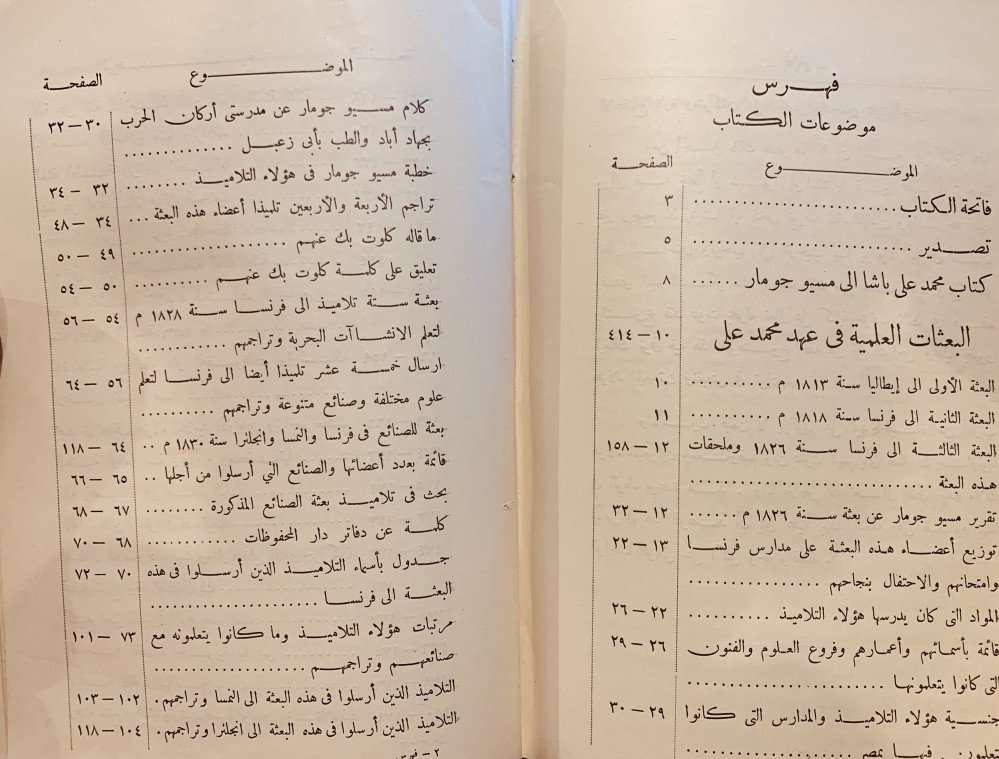 فهرس
موضوعات الكتاب
الموضوع الصفحة
فاتحة الكتاب ٣
تصدير ٥
كتاب محمد على باشا الى مسيو جومار ٨
البعثات العلمية فى عهد محمد على ١٠ — ٤١٤
البعثة الأولى الى إيطاليا سنة ١٨١٣ م ١٠
البعثة الثانية الى فرنسا سنة ١٨١٨ م ١١
البعثة الثالثة الى فرنسا سنة ١٨٢٦ وملحقات ١٢ — ١٥٨
هذه البعثة
تقرير مسيو جومار عن بعثة سنة ١٨٢٦ م ١٢ — ٣٢
توزيع أعضاء هذه البعثة على مدارس فرنسا ١٣ — ٢٢
وامتحانهم والاحتفال بنجاحهم
المواد التى كان يدرسها هؤلاء التلاميذ ٢٢ — ٢٦
قائمة بأسمائهم وأعمارهم وفروع العلوم والفنون ٢٦ — ٢٩
التى كانوا يتعلمونها
جنسية هؤلاء التلاميذ والمدارس التى كانوا ٢٩ — ٣٠
يتعلمون فيها بمصر
الموضوع الصفحة
كلام مسيو جومار عن مدرستى أركان الحرب ٣٠ — ٣٢
بجهاد أباد والطب بأبى زعبل
خطبة مسيو جومار فى هؤلاء التلاميذ ٣٢ — ٣٤
تراجم الأربعة والأربعين تلميذا أعضاء هذه البعثة ٣٤ — ٤٨
ما قاله كلوت بك عنهم ٤٩ — ٥٠
تعليق على كلمة كلوت بك عنهم ٥٠ — ٥٤
بعثة ستة تلاميذ الى فرنسا سنة ١٨٢٨ م ٥٤ — ٥٦
لتعلم الانشاآت البحرية وتراجمهم
ارسال خمسة عشر تلميذا أيضا الى فرنسا لتعلم ٥٦ — ٦٤
علوم مختلفة وصنائع متنوعة وتراجمهم
بعثة للصنائع فى فرنسا والنمسا وانجلترا سنة ١٨٣٠ م ٦٤ — ١١٨
قائمة بعدد أعضائها والصنائع التي أرسلوا من أجلها ٦٥ — ٦٦
بحث فى تلاميذ بعثة الصنائع المذكورة ٦٧ — ٦٨
كلمة عن دفاتر دار المحفوظات ٦٨ — ٧٠
جدول بأسماء التلاميذ الذين أرسلوا فى هذه ٧٠ — ٧٢
البعثة الى فرنسا
مرتبات هؤلاء التلاميذ وما كانوا يتعلمونه مع ٧٣ — ١٠١
صنائعهم وتراجمهم
التلاميذ الذين أرسلوا فى هذه البعثة الى النمسا وتراجمهم. ١٠٢ — ١٠٣
التلاميذ الذين أرسلوا فى هذه البعثة الى انجلترا وتراجمهم. ١٠٤ — ١١٨